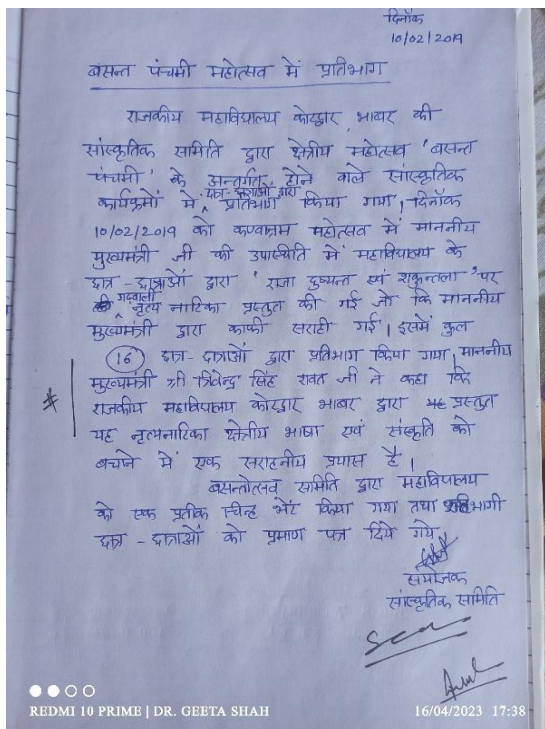 दिनाँक
10/02/2019
बसन्त पंचमी महोत्सव में प्रतिभाग
राजकीय महाविद्यालय कोटद्वार भाबर की
सांस्कृतिक समिति द्वारा क्षेत्रीय महोत्सव 'बसन्त
पंचमी' के अन्तर्गत होने वाले सांस्कृतिक
कार्यक्रमों में छात्र-छात्राओं द्वारा प्रतिभाग किया गया। दिनाँक
10/02/2019 को कण्वाश्रम महोत्सव में माननीय
मुख्यमंत्री जी की उपस्थिति में महाविद्यालय के
छात्र-छात्राओं द्वारा 'राजा दुष्यन्त एवं शकुन्तला' पर
गढ़वाली नृत्य नाटिका प्रस्तुत की गई जो कि माननीय
मुख्यमंत्री द्वारा काफी सराही गई। इसमें कुल
16 छात्र-छात्राओं द्वारा प्रतिभाग किया गया। माननीय
मुख्यमंत्री श्री त्रिवेन्द्र सिंह रावत जी ने कहा कि
राजकीय महाविद्यालय कोटद्वार भाबर द्वारा प्रस्तुत
यह नृत्यनाटिका क्षेत्रीय भाषा एवं संस्कृति को
बचाने में एक सराहनीय प्रयास है।
बसन्तोत्सव समिति द्वारा महाविद्यालय
को एक प्रतीक चिन्ह भेंट किया गया तथा प्रतिभागी
छात्र-छात्राओं को प्रमाण पत्र दिये गये
संयोजक
सांस्कृतिक समिति
REDMI 10 PRIME | DR. GEETA SHAH
16/04/2023 17:38